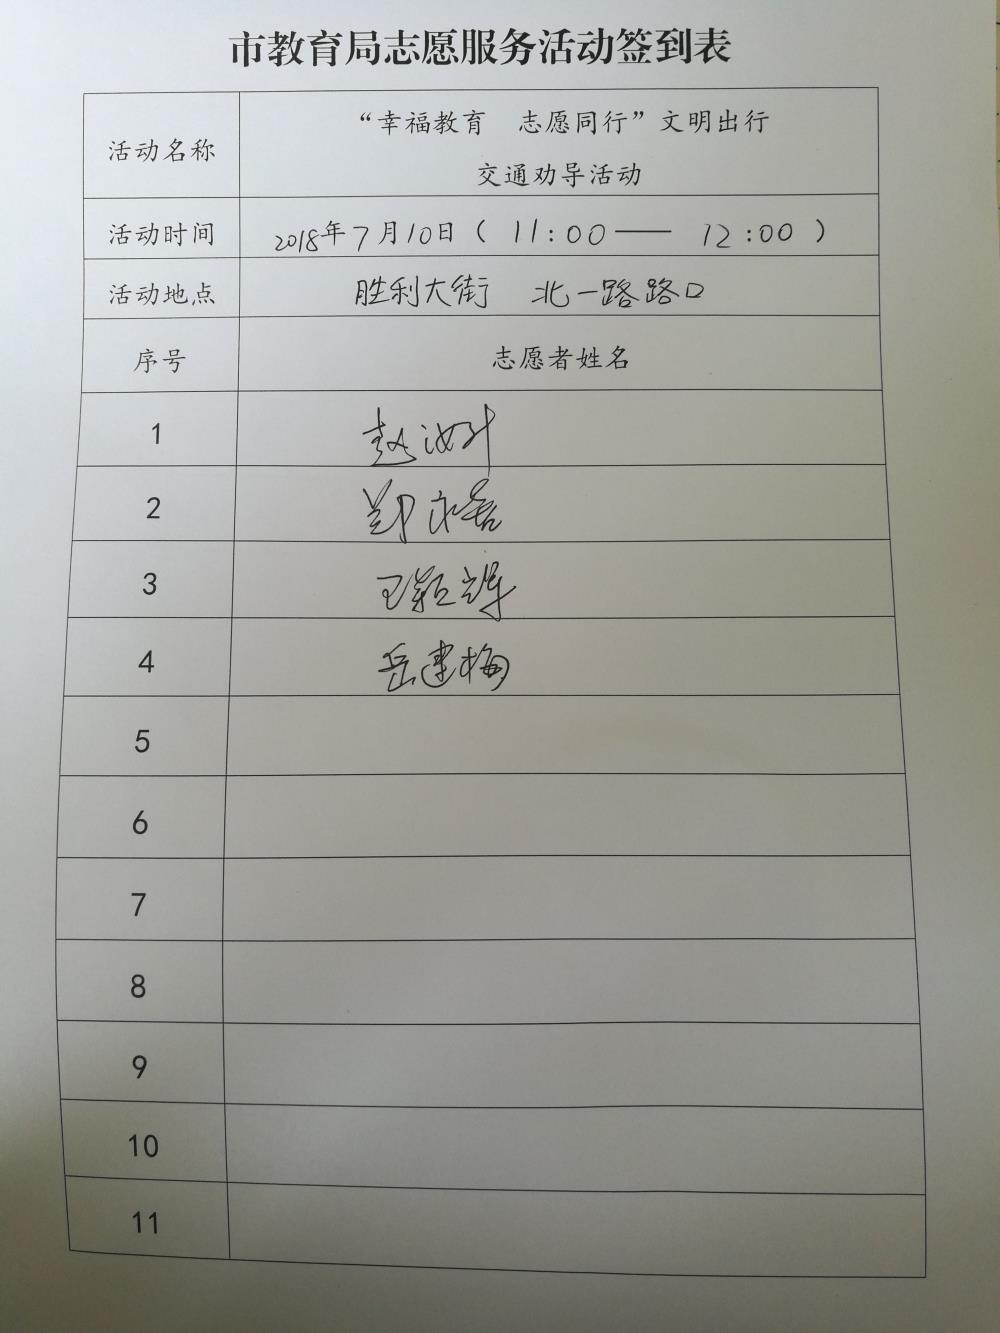 市教育局志愿服务活动签到表
活动名称
“幸福教育 志愿同行”文明出行
交通劝导活动
活动时间
2018年7月10日( 11:00—— 12:00 )
活动地点
胜利大街 北一路路口
序号
志愿者姓名
1
赵汝
2
郑永
3
王颖辉
4
岳建梅
5
6
7
8
9
10
11